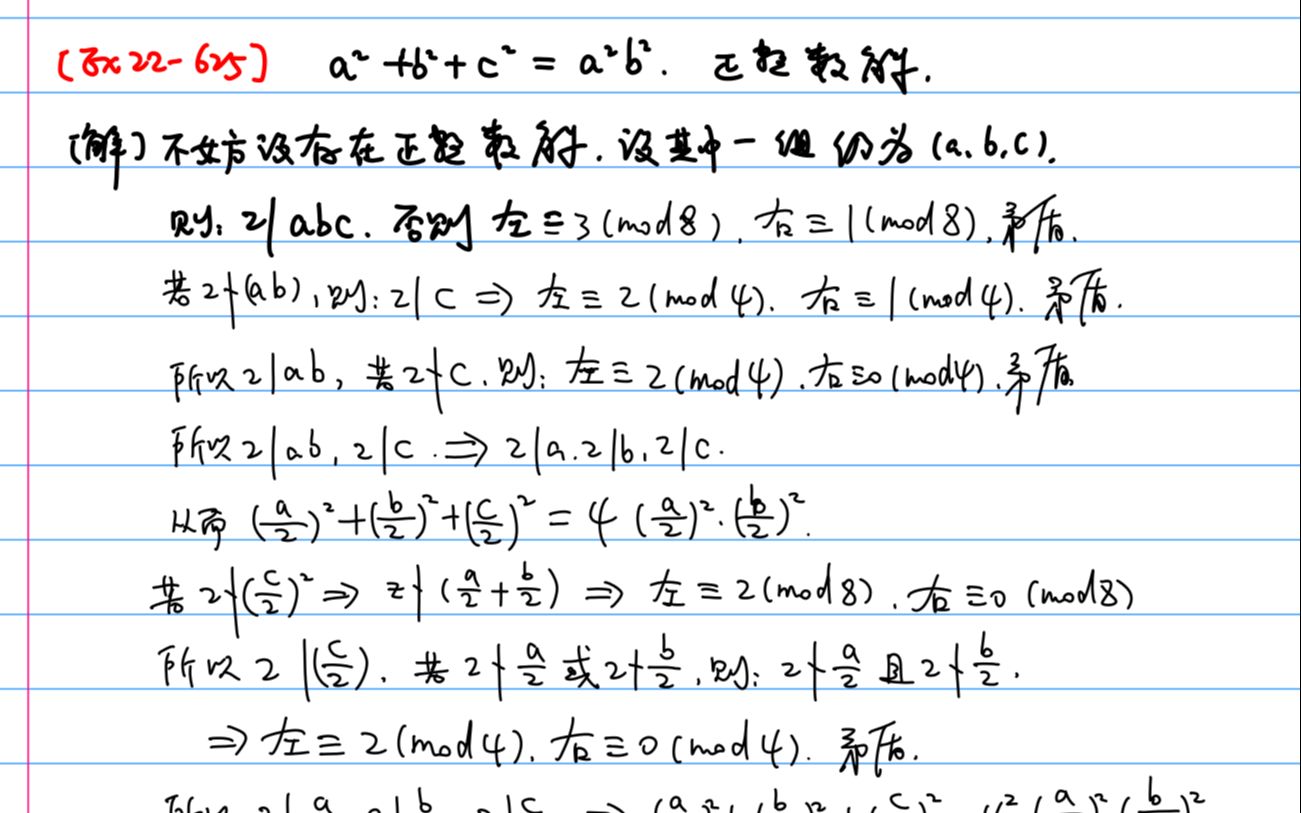 [Ex 22-625] a² + b² + c² = a²b². 正整数解.
(解) 不妨设存在正整数解. 设其中一组仍为 (a, b, c).
则: 2|abc. 否则 左 ≡ 3 (mod 8). 右 ≡ 1 (mod 8). 矛盾.
若 2∤(ab), 则: 2|c ⇒ 左 ≡ 2 (mod 4). 右 ≡ 1 (mod 4). 矛盾.
所以 2|ab, 若 2∤c. 则: 左 ≡ 2 (mod 4). 右 ≡ 0 (mod 4). 矛盾
所以 2|ab, 2|c. ⇒ 2|a. 2|b, 2|c.
从而 (a/2)² + (b/2)² + (c/2)² = 4 (a/2)²·(b/2)².
若 2∤(c/2)² ⇒ 2∤(a/2 + b/2) ⇒ 左 ≡ 2 (mod 8). 右 ≡ 0 (mod 8)
所以 2|(c/2). 若 2∤a/2 或 2∤b/2, 则: 2∤a/2 且 2∤b/2.
⇒ 左 ≡ 2 (mod 4). 右 ≡ 0 (mod 4). 矛盾.